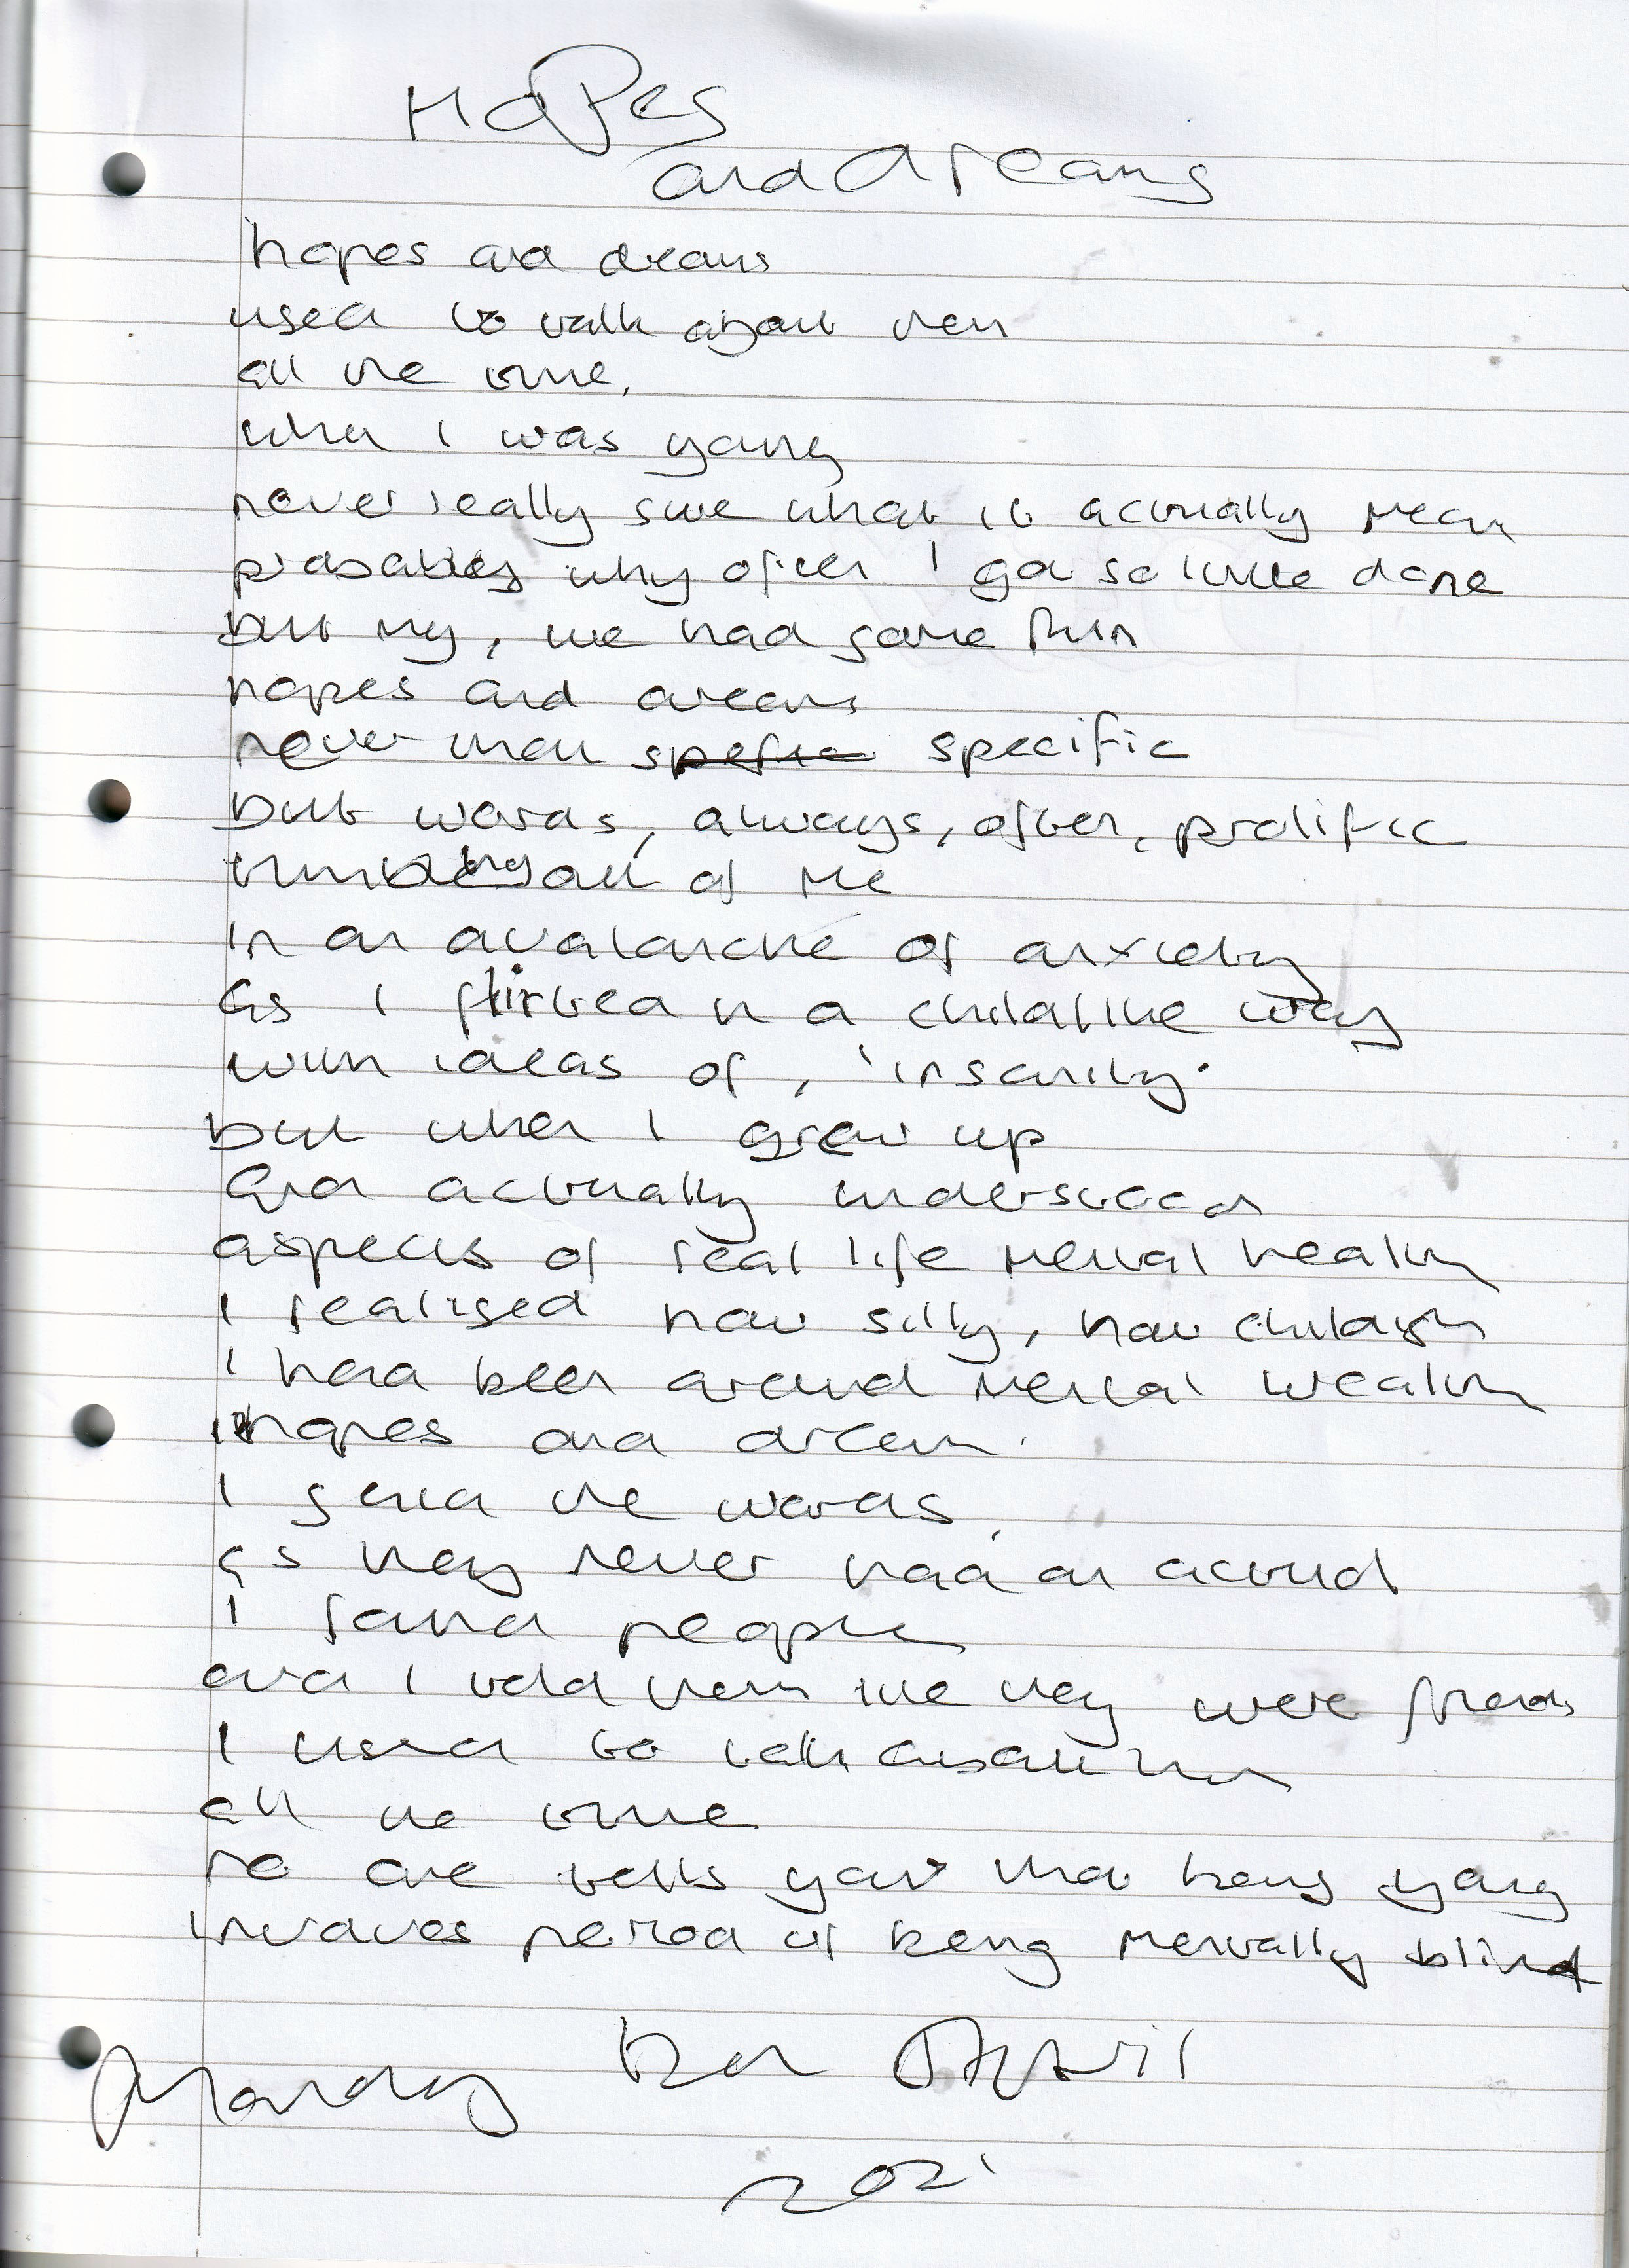 Hopes
and dreams
hopes and dreams
used to talk about them
all the time,
when I was young
never really sure what it actually mean
probably why often I got so little done
but my, we had some fun
hopes and dreams
never that spefic specific
but words, always, often, prolific
tumbling out of me
in an avalanche of anxiety
as I flirted in a childlike way
with ideas of, 'insanity'
but when I grew up
and actually understood
aspects of real life mental health
I realised how silly, how childish
I had been around mental wealth
hopes and dream.
I send the words,
as they never had an
I found people
and I told them like they were friends
I used to talk about them
all the time
no one tells you that being young
involves period of being mentally blind
Monday April
202